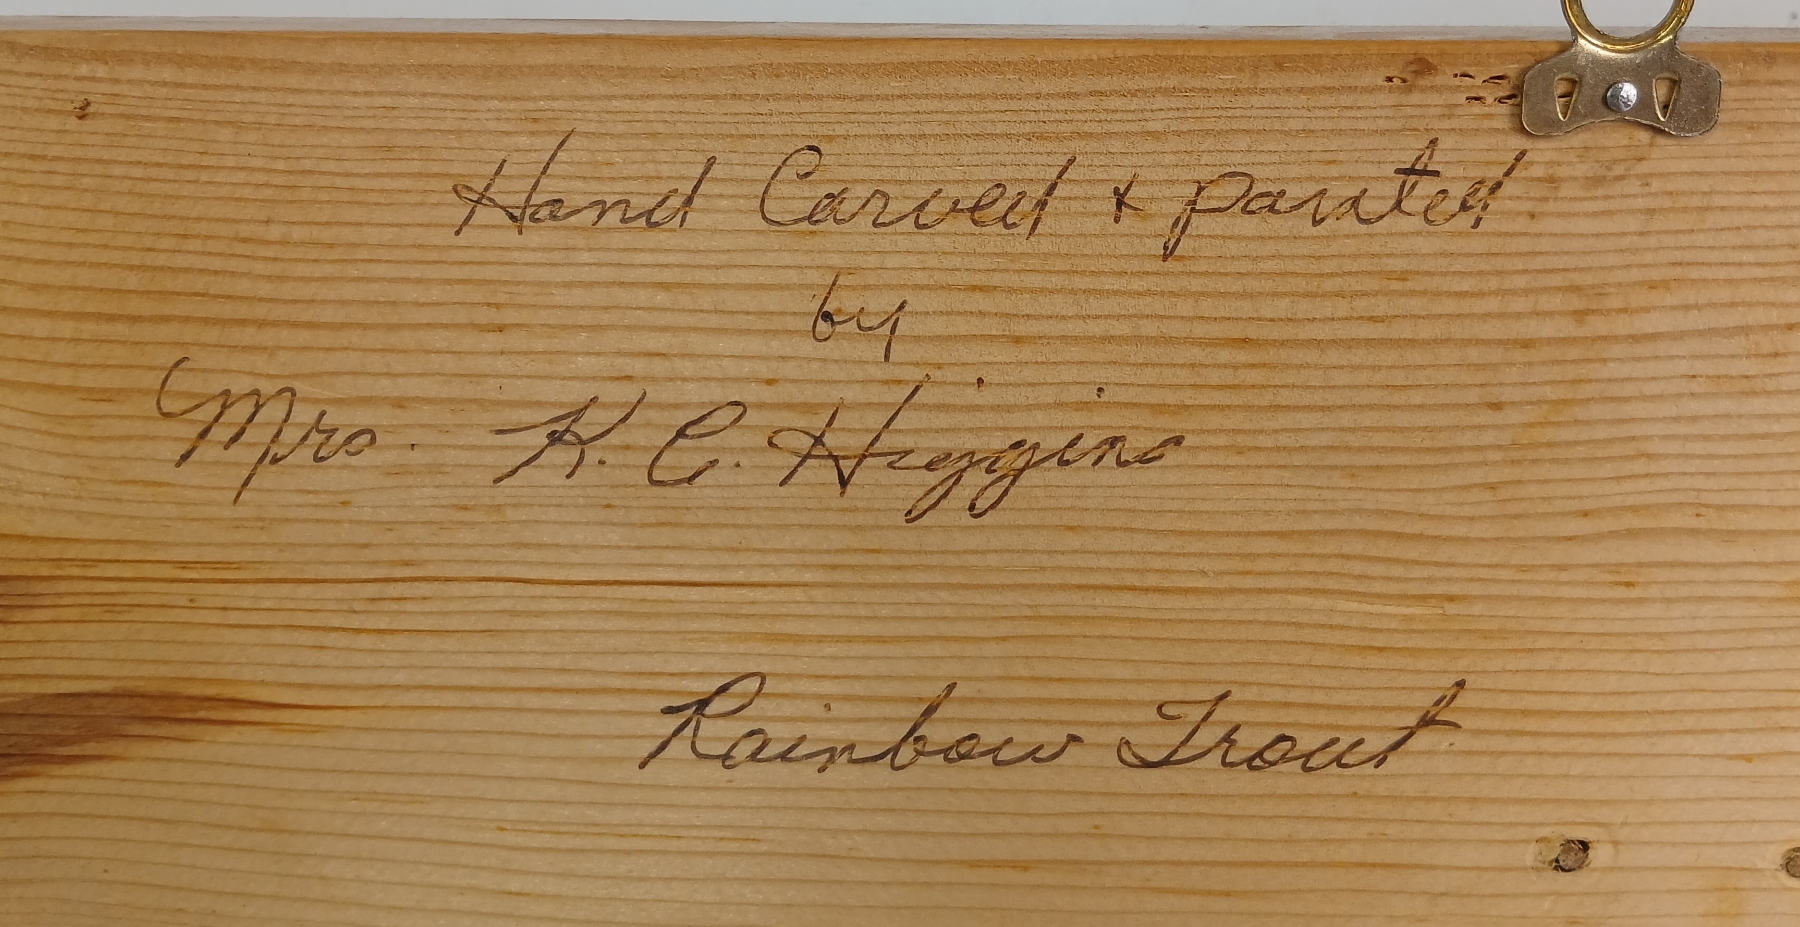 Hand Carved + painted
by
Mrs. K. C. Higgins
Rainbow Trout